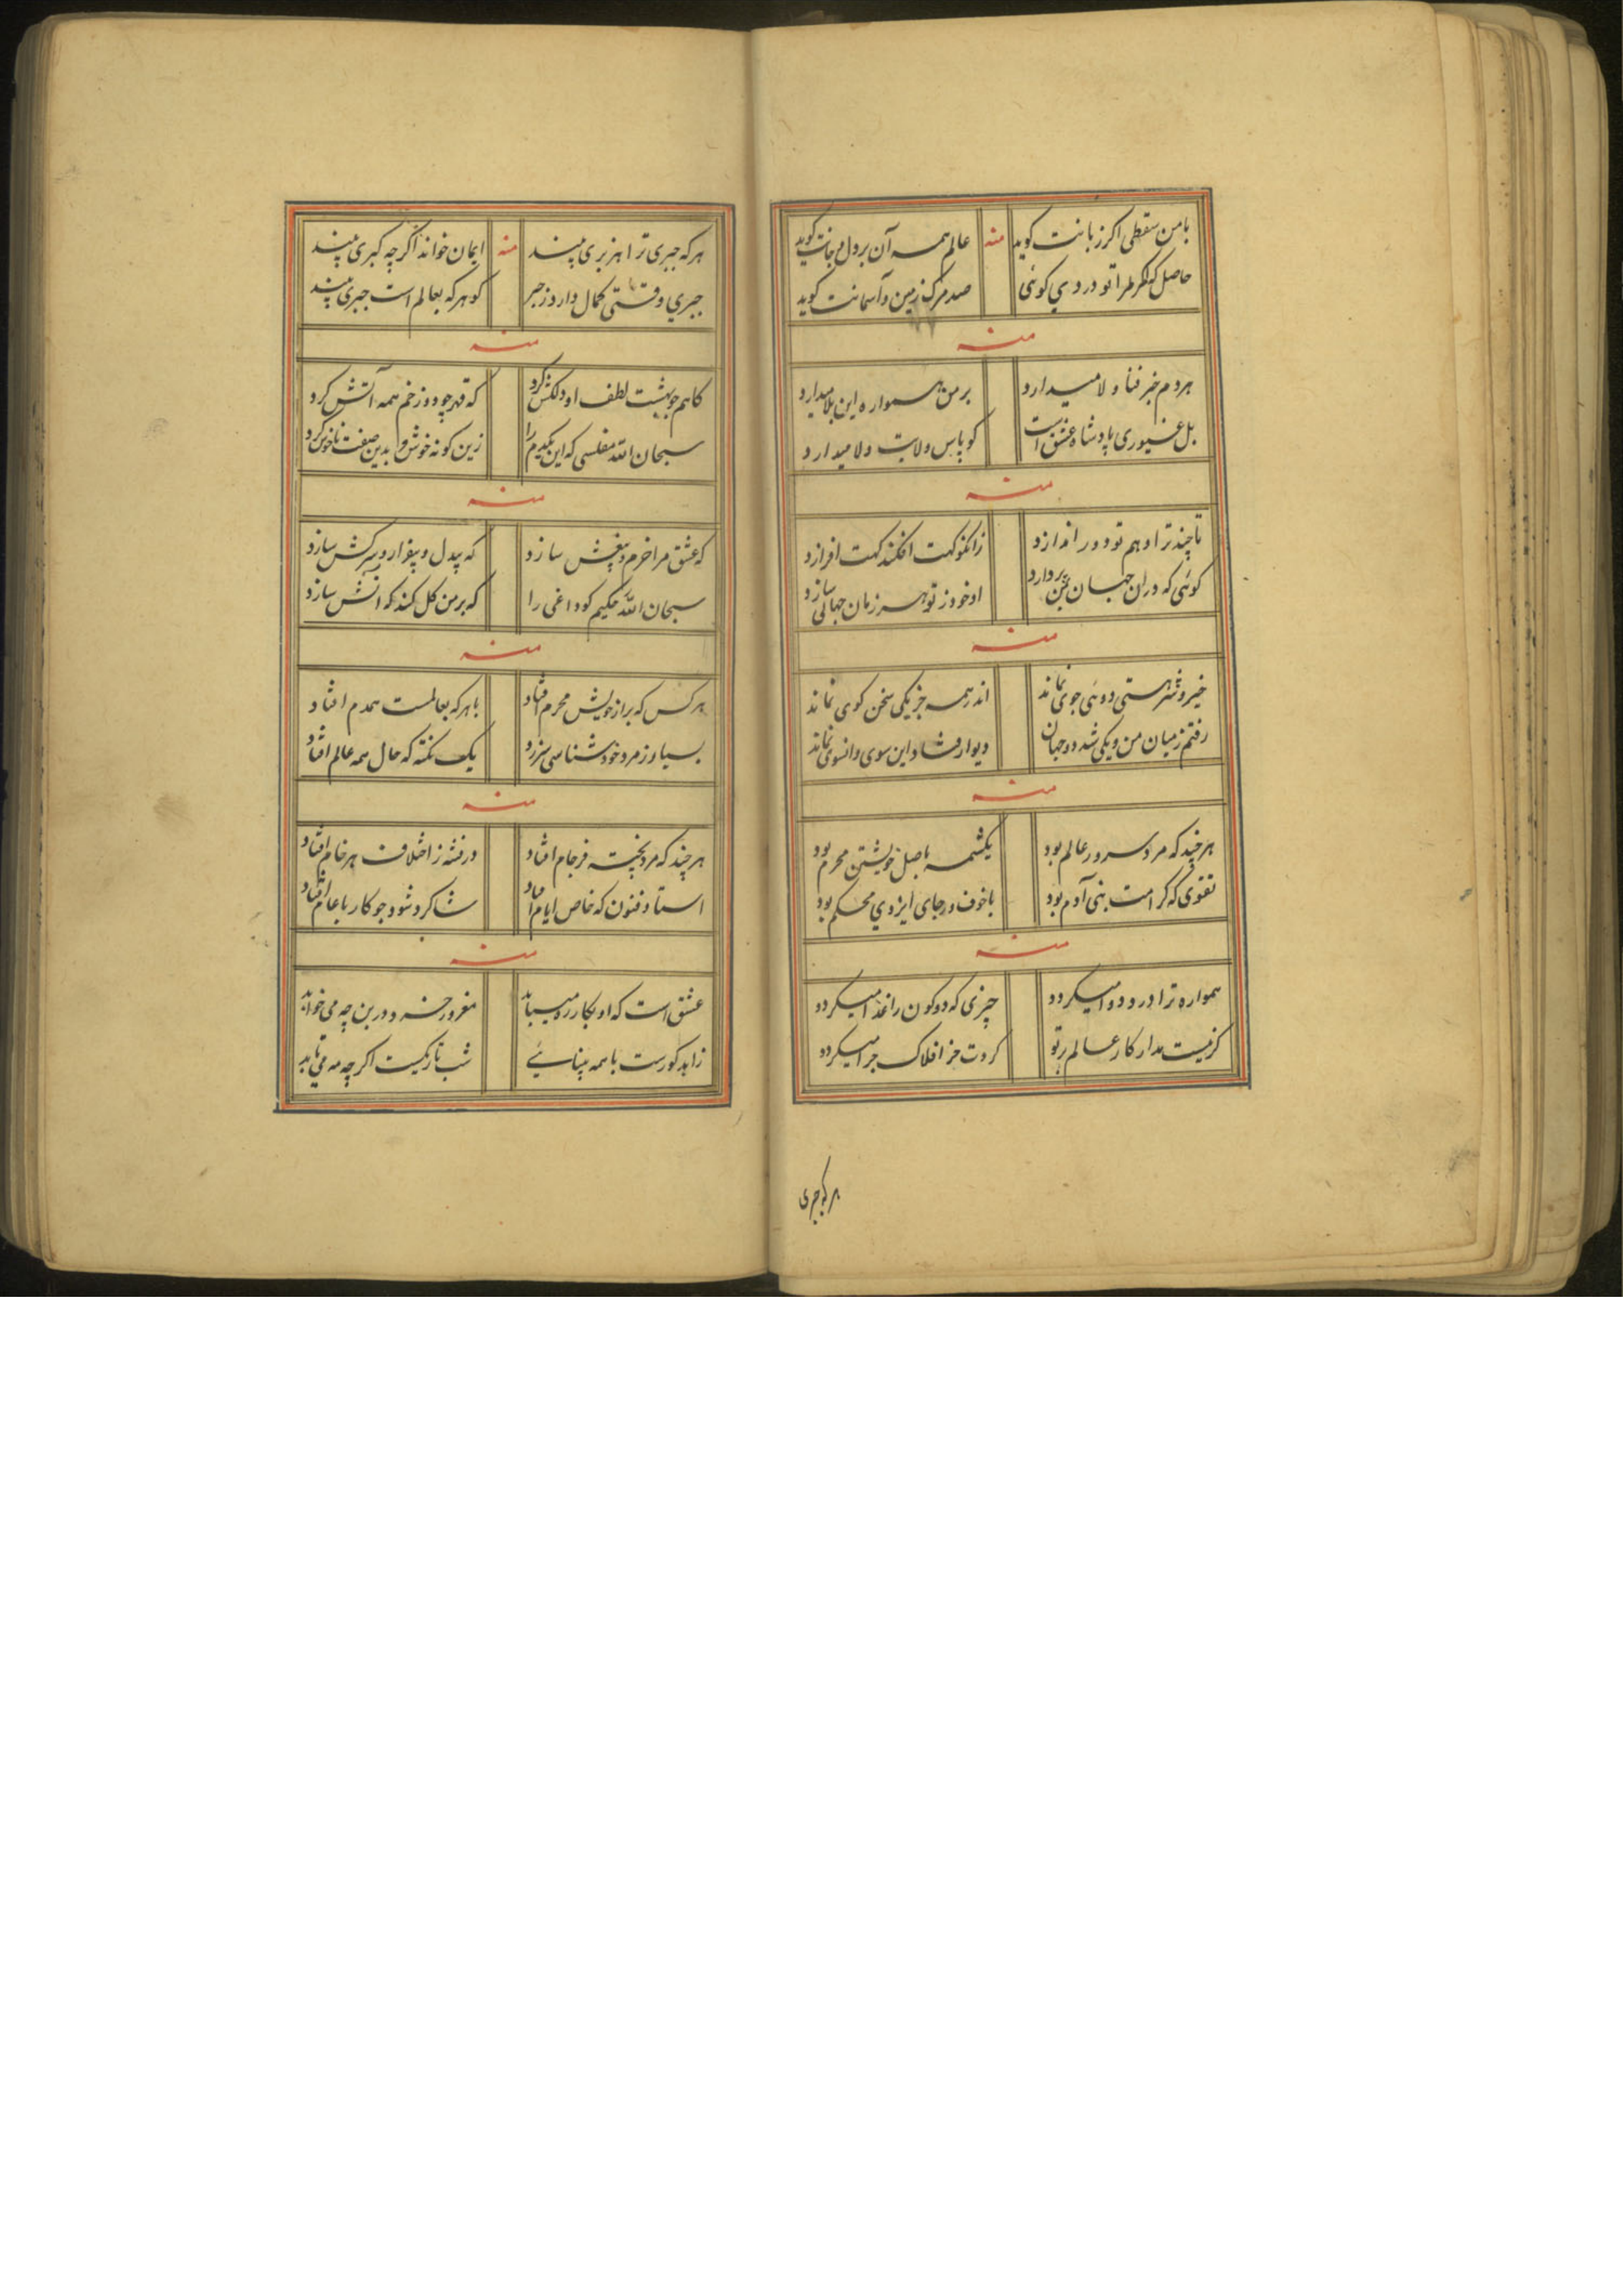 بامن سقطی اکر زبانت کوید
منه
عالم همه آن بر دل و جانت کوید
حاصل که اکر مرا تو درد می کوئی
صد مرک زمین و آسمانت کوید
منه
هر دم خبر فنا و لا میدارد
بر من همواره این بلا میدارد
بل غیوری پادشاه عشق است
کو پاس ولایت ولا میدارد
منه
تا چند ترا وهم تو دور اندازد
زانکو کهت افکند کهت افرازد
کوئی که در ان جهان بردارد
او خود ز تو هر زمان جهانی سازد
منه
خیر و شر هستی دوئی جوی نماند
اندر همه جز یکی سخن کوی نماند
رفتم ز میان من و یکی شد دو جهان
دیوار فتاد و این سوی و انسوی نماند
منه
هر چند که مرد سرور عالم بود
یکشمه باصل خویشتن محرم بود
تقوی که کرامت بنی آدم بود
با خوف و رجای ایزدی محکم بود
منه
همواره ترا درد و دوا میکردد
چیزی که دو کون را غذا میکردد
کر نیست مدار کار عالم بر تو
کردت جز افلاک چرا میکردد
هر که جبری
هر که جبری ترا هنبری بیند
منه
ایمان خواند اکر چه کبری بیند
جبری وقتی کمال دارد ز جبر
کو هر که بعالم است جبری بیند
منه
کاهم چو بهشت لطف او دلکش کرد
که قهر چو دوزخم همه آتش کرد
سبحان الله مفلسی که این یکدم را
زین کونه خوش و بدین صفت ناخوش کرد
منه
که عشق مرا خرم و بیغش سازد
که بیدل و بیقرار و سرکش سازد
سبحان الله حکیم کو داغی را
که بر من کل کند که آتش سازد
منه
هر کس که براز خویش محرم افتاد
با هر که بعالمست همدم افتاد
بسیار ز مرد خود شناسی سر زد
یک نکته که حال همه عالم افتاد
منه
هر چند که مرد پخته فرجام افتاد
در فتنه ز اختلاف هر خام افتاد
استاد فنون که خاص ایام افتاد
شاکرد شود چو کار با عام افتاد
منه
عشق است که او بکار رد میباید
مغرور خسه دور بن چه می خواند
زاهد کورست با همه بینائی
شب تاریکست اکر چه مه می تابد